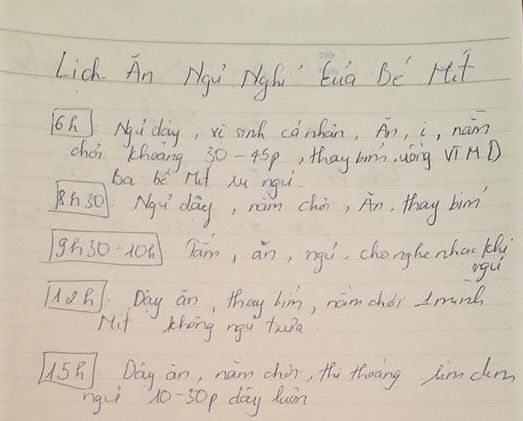 Lịch Ăn Ngủ Nghỉ Của Bé Mít
6h Ngủ dậy, vệ sinh cá nhân, Ăn, ị, nằm
chơi khoảng 30 - 45p, thay bỉm, uống VTMD
Ba bế Mít ru ngủ.
8h30: Ngủ dậy, nằm chơi, Ăn, thay bỉm
9h30-10h Tắm, ăn, ngủ. cho nghe nhạc khi
ngủ
12h: Dậy ăn, thay bỉm, nằm chơi 1 mình
Mít không ngủ trưa.
15h Dậy ăn, nằm chơi, thi thoảng lim dim
ngủ 10-30p dậy luôn